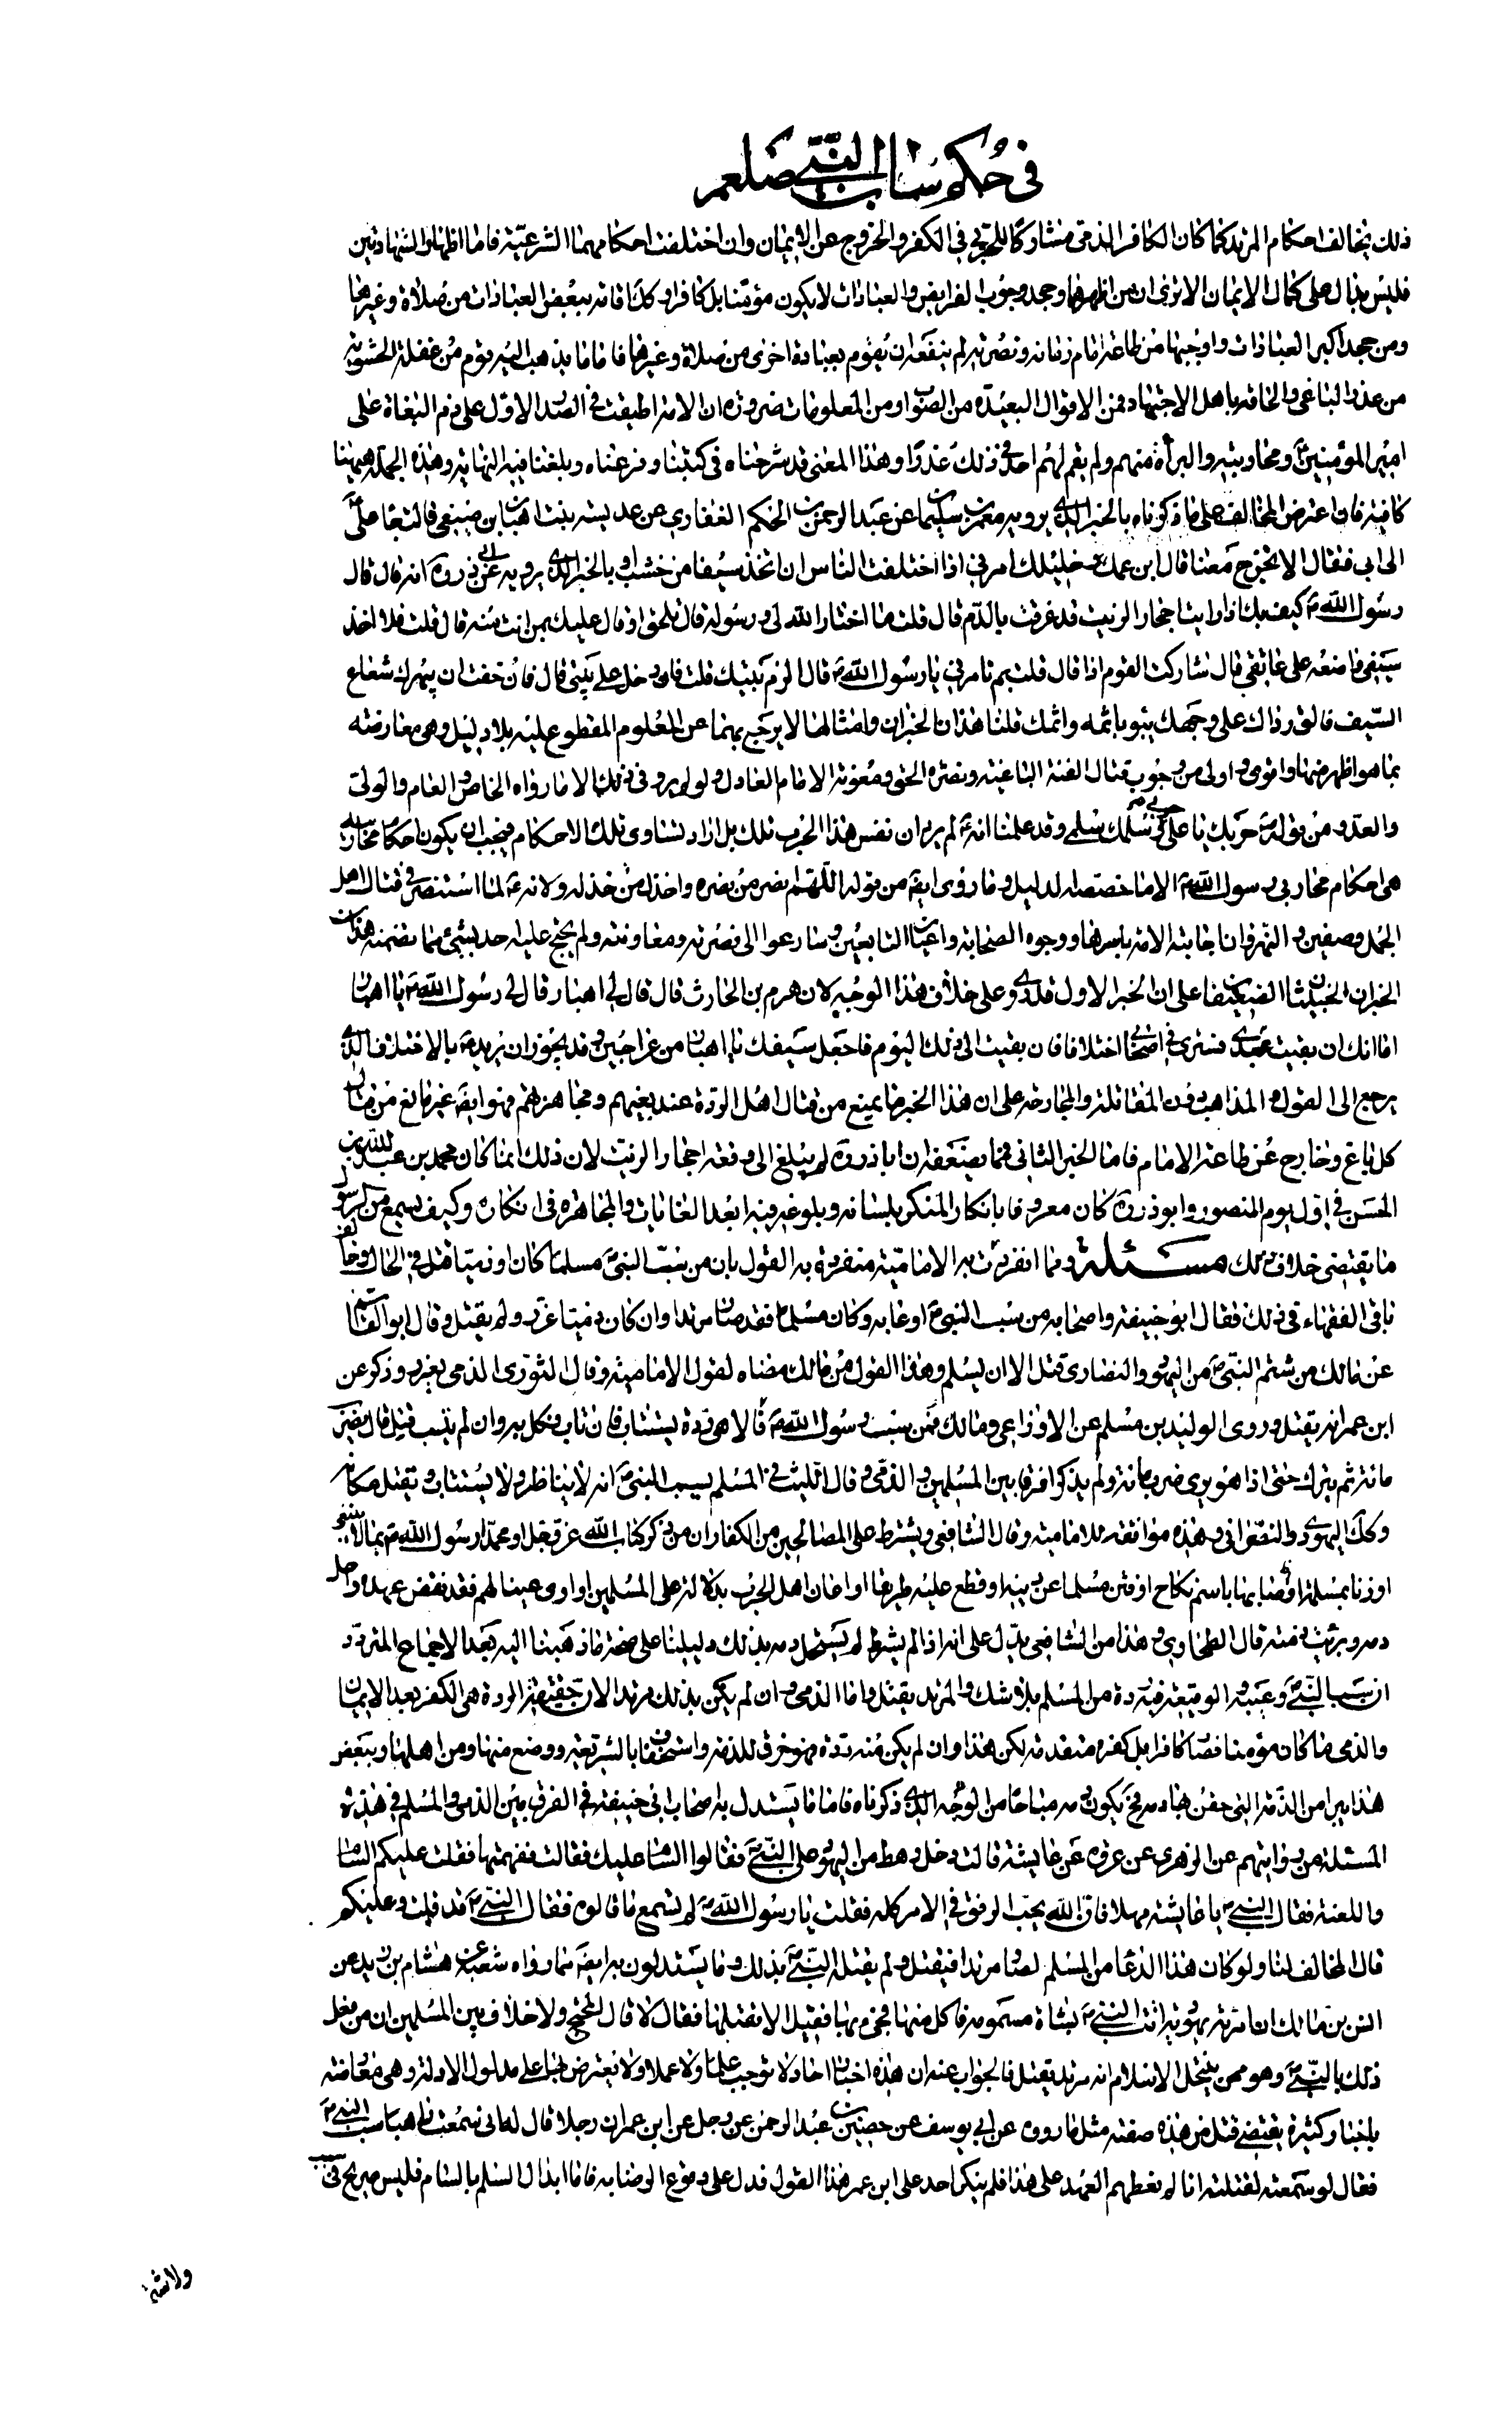 في حكم ساب النبي صلعم
ذلك يخالف احكام المرتد كما كان الكافر الذمي مشاركا للحربي في الكفر والخروج عن الايمان وان اختلفت احكامهما الشرعية فاما اظهار الشهادتين
فليس بدال على كمال الايمان الا ترى ان من اظهرهما وجحد وجوب الفرايض والعبادات لا يكون مؤمنا بل كافرا وكذا اقامة بعض العبادات من صلاة وغيرها
ومن جحد اكبر العبادات واوجبها من طاعة امام زمانه ونصرته لم ينفعه ان يقوم بعبادة اخرى من صلاة وغيرها فاما ما يذهب اليه قوم من غفلة الحشوية
من عذر الباغي والحاقه باهل الاجتهاد فمن الاقوال البعيدة من الصواب ومن المعلومات ضرورة ان الامة اطبقت في الصدر الاول على ذم البغاة على
امير المؤمنين ع ومحاربته والبرأة منهم ولم يقم لهم احد في ذلك عذرا وهذا المعنى قد شرحناه في كتبنا وفرعناه وبلغنا فيه النهاية وهذه الجملة هيهنا
كافية فان اعترض المخالف على ما ذكرناه بالخبر الذي يرويه معمر بن سليمان عن عبد الرحمن بن الحكم الغفاري عن عديسة بنت اهبان بن صيفي قالت جاء علي ع
الى ابي فقال الا تخرج معنا قال ابن عمك وخليلك امرني اذا اختلف الناس ان اتخذ سيفا من خشب او بالخبر الذي يرويه عن ابي ذر ره انه قال قال
رسول الله ص كيف بك اذا رايت احجار الزيت قد غرقت بالدم قال قلت ما اختار الله لي ورسوله قال تلحق او قال عليك بمن انت منه قال قلت افلا اخذ
سيفي فاضعه على عاتقي قال شاركت القوم اذا قال قلت بم تامرني يا رسول الله ص قال الزم بيتك قلت فان دخل على بيتي قال فان خفت ان يبهرك شعاع
السيف فالق رداك على وجهك يبوء باثمه واثمك قلنا هذان الخبران وامثالهما لا يرجع بهما عن المعلوم المقطوع عليه بلا دليل وهي معارضة
بما هو اظهر منها واقوى واولى من وجوب قتال الفئة الباغية ونصرة الحق ومعونة الامام العادل ولو لم يرو في ذلك الا ما رواه الخاص والعام والولي
والعدو من قوله ص حربك يا علي حربي وسلمك سلمي وقد علمنا انه ع لم يرد ان نفس هذا الحرب تلك بل اراد تساوي تلك الاحكام فيجب ان يكون احكام محاربيه
هي احكام محاربي رسول الله ص الا ما خصصه الدليل وما روى ايضا من قوله اللهم انصر من نصره واخذل من خذله ولانه ع لما استنصر في قتال اهل
الجمل وصفين والنهروان اجابته الامة باسرها ووجوه الصحابة واعيان التابعين وسارعوا الى نصرته ومعاونته ولم يحتج عليه احد بشئ مما تضمنه هذان
الخبران الخبيثان الضعيفان على ان الخبر الاول قد روي على خلاف هذا الوجه لان هرم بن الحارث قال قال لي اهبان قال لي رسول الله ص يا اهبان
اما انك ان بقيت بعدي فسترى في اصحابي اختلافا فان بقيت الى ذلك اليوم فاجعل سيفك يا اهبان من عراجين وقد يجوز ان يريد ع بالاختلاف الذي
يرجع الى القول والمذاهب دون المقاتلة والمحاربة على ان هذا الخبر ما يمنع من قتال اهل الردة عند بغيهم ومجاهرتهم فهو ايضا غير مانع من قتال
كل باغ وخارج عن طاعة الامام فاما الخبر الثاني فمما يضعفه ان ابا ذر ره لم يبلغ الى وقعة احجار الزيت لان ذلك انما كان مع محمد بن عبد الله بن
الحسن في اول يوم المنصور وابو ذر ره كان معروفا بانكار المنكر بلسانه وبلوغه فيه ابعد الغايات والمجاهرة في انكاره وكيف يسمع من الرسول
ما يقتضي خلاف ذلك مسئلة ومما انفردت به الامامية القول بان من سب النبي ص مسلما كان او ذميا قتل في الحال وخالف
باقي الفقهاء في ذلك فقال ابو حنيفة واصحابه من سب النبي ص او عابه وكان مسلما فقد صار مرتدا وان كان ذميا عزر ولم يقتل وقال ابن القاسم
عن مالك من شتم النبي ص من اليهود والنصارى قتل الا ان يسلم وهذا القول من مالك مضاه لقول الامامية وقال الثوري الذمي يعزر وذكر عن
ابن عمر انه يقتل وروى الوليد بن مسلم عن الاوزاعي ومالك فيمن سب رسول الله ص قالا هي ردة يستتاب فان تاب نكل به وان لم يتب قتل قال يضرب
مائة ثم يترك حتى اذا هو برئ ضرب مائة ولم يذكرا فرقا بين المسلمين والذمي وقال الليث في المسلم يسب النبي ص انه لا يناظر ولا يستتاب ويقتل مكانه
وكذلك اليهودي والنصراني وهذه موافقة للامامية وقال الشافعي ويشترط على المصالحين من الكفار ان من ذكر كتاب الله عز وجل او محمدا رسول الله ص بما لا ينبغي
او زنا بمسلمة او اصابها باسم نكاح او فتن مسلما عن دينه او قطع عليه طريقا او اعان اهل الحرب بدلالة على المسلمين او اوى عينا لهم فقد نقض عهده واحل
دمه وبرئت منه ذمته قال الطحاوي وهذا من الشافعي يدل على انه اذا لم يشرط لم يستحل دمه بذلك دليلنا على صحة ما ذهبنا اليه بعد الاجماع المتردد
ان سب النبي ص وعيبه والوقيعة فيه ردة من المسلم بلا شك والمرتد يقتل واما الذمي وان لم يكن بذلك مرتدا لان حقيقة الردة هي الكفر بعد الايمان
والذمي ما كان مؤمنا فصار كافرا بل كفره متقدمة لكن هذا وان لم يكن منه ردة فهو خرق للذمة واستخفاف بالشريعة ووضع منها ومن اهلها وببعض
هذا يبرا من الذمة التي حقن بها دمه فح يكون دمه مباحا من الوجه الذي ذكرناه فاما ما يستدل به اصحاب ابي حنيفة في الفرق بين الذمي والمسلم في هذه
المسئلة من روايتهم عن الزهري عن عروة عن عايشة قالت دخل رهط من اليهود على النبي ص فقالوا السام عليك فقالت ففهمتها فقلت عليكم السام
واللعنة فقال النبي ص يا عايشة مهلا فان الله يحب الرفق في الامر كله فقلت يا رسول الله ص لم تسمع ما قالوه فقال النبي ص قد قلت وعليكم
قال المخالف لنا ولو كان هذا الدعاء من المسلم لصار مرتدا فيقتل ولم يقتله النبي ص بذلك وما يستدلون به ايضا مما رواه شعبة عن هشام بن يزيد عن
انس بن مالك ان امراة يهودية اتت النبي ص بشاة مسمومة فاكل منها فجئ بها فقيل الا تقتلها فقال لا قال المحتج ولا خلاف بين المسلمين ان من فعل
ذلك بالنبي ص وهو ممن ينتحل الاسلام انه مرتد يقتل فالجواب عنه ان هذه اخبار احاد لا توجب علما ولا عملا ولا نعترض بها على مدلول الادلة وهي معارضة
باخبار كثيرة يقتضي قتل من هذه صفته مثل ما روي عن ابي يوسف عن حصين بن عبد الرحمن عن رجل عن ابن عمر ان رجلا قال له اني سمعت راهبا سب النبي ص
فقال لو سمعته لقتلته انا لم نعطهم العهد على هذا فلم ينكر احد على ابن عمر هذا القول فدل على وقوع الرضا به فاما ابدال السلم بالسام فليس بصريح في سب